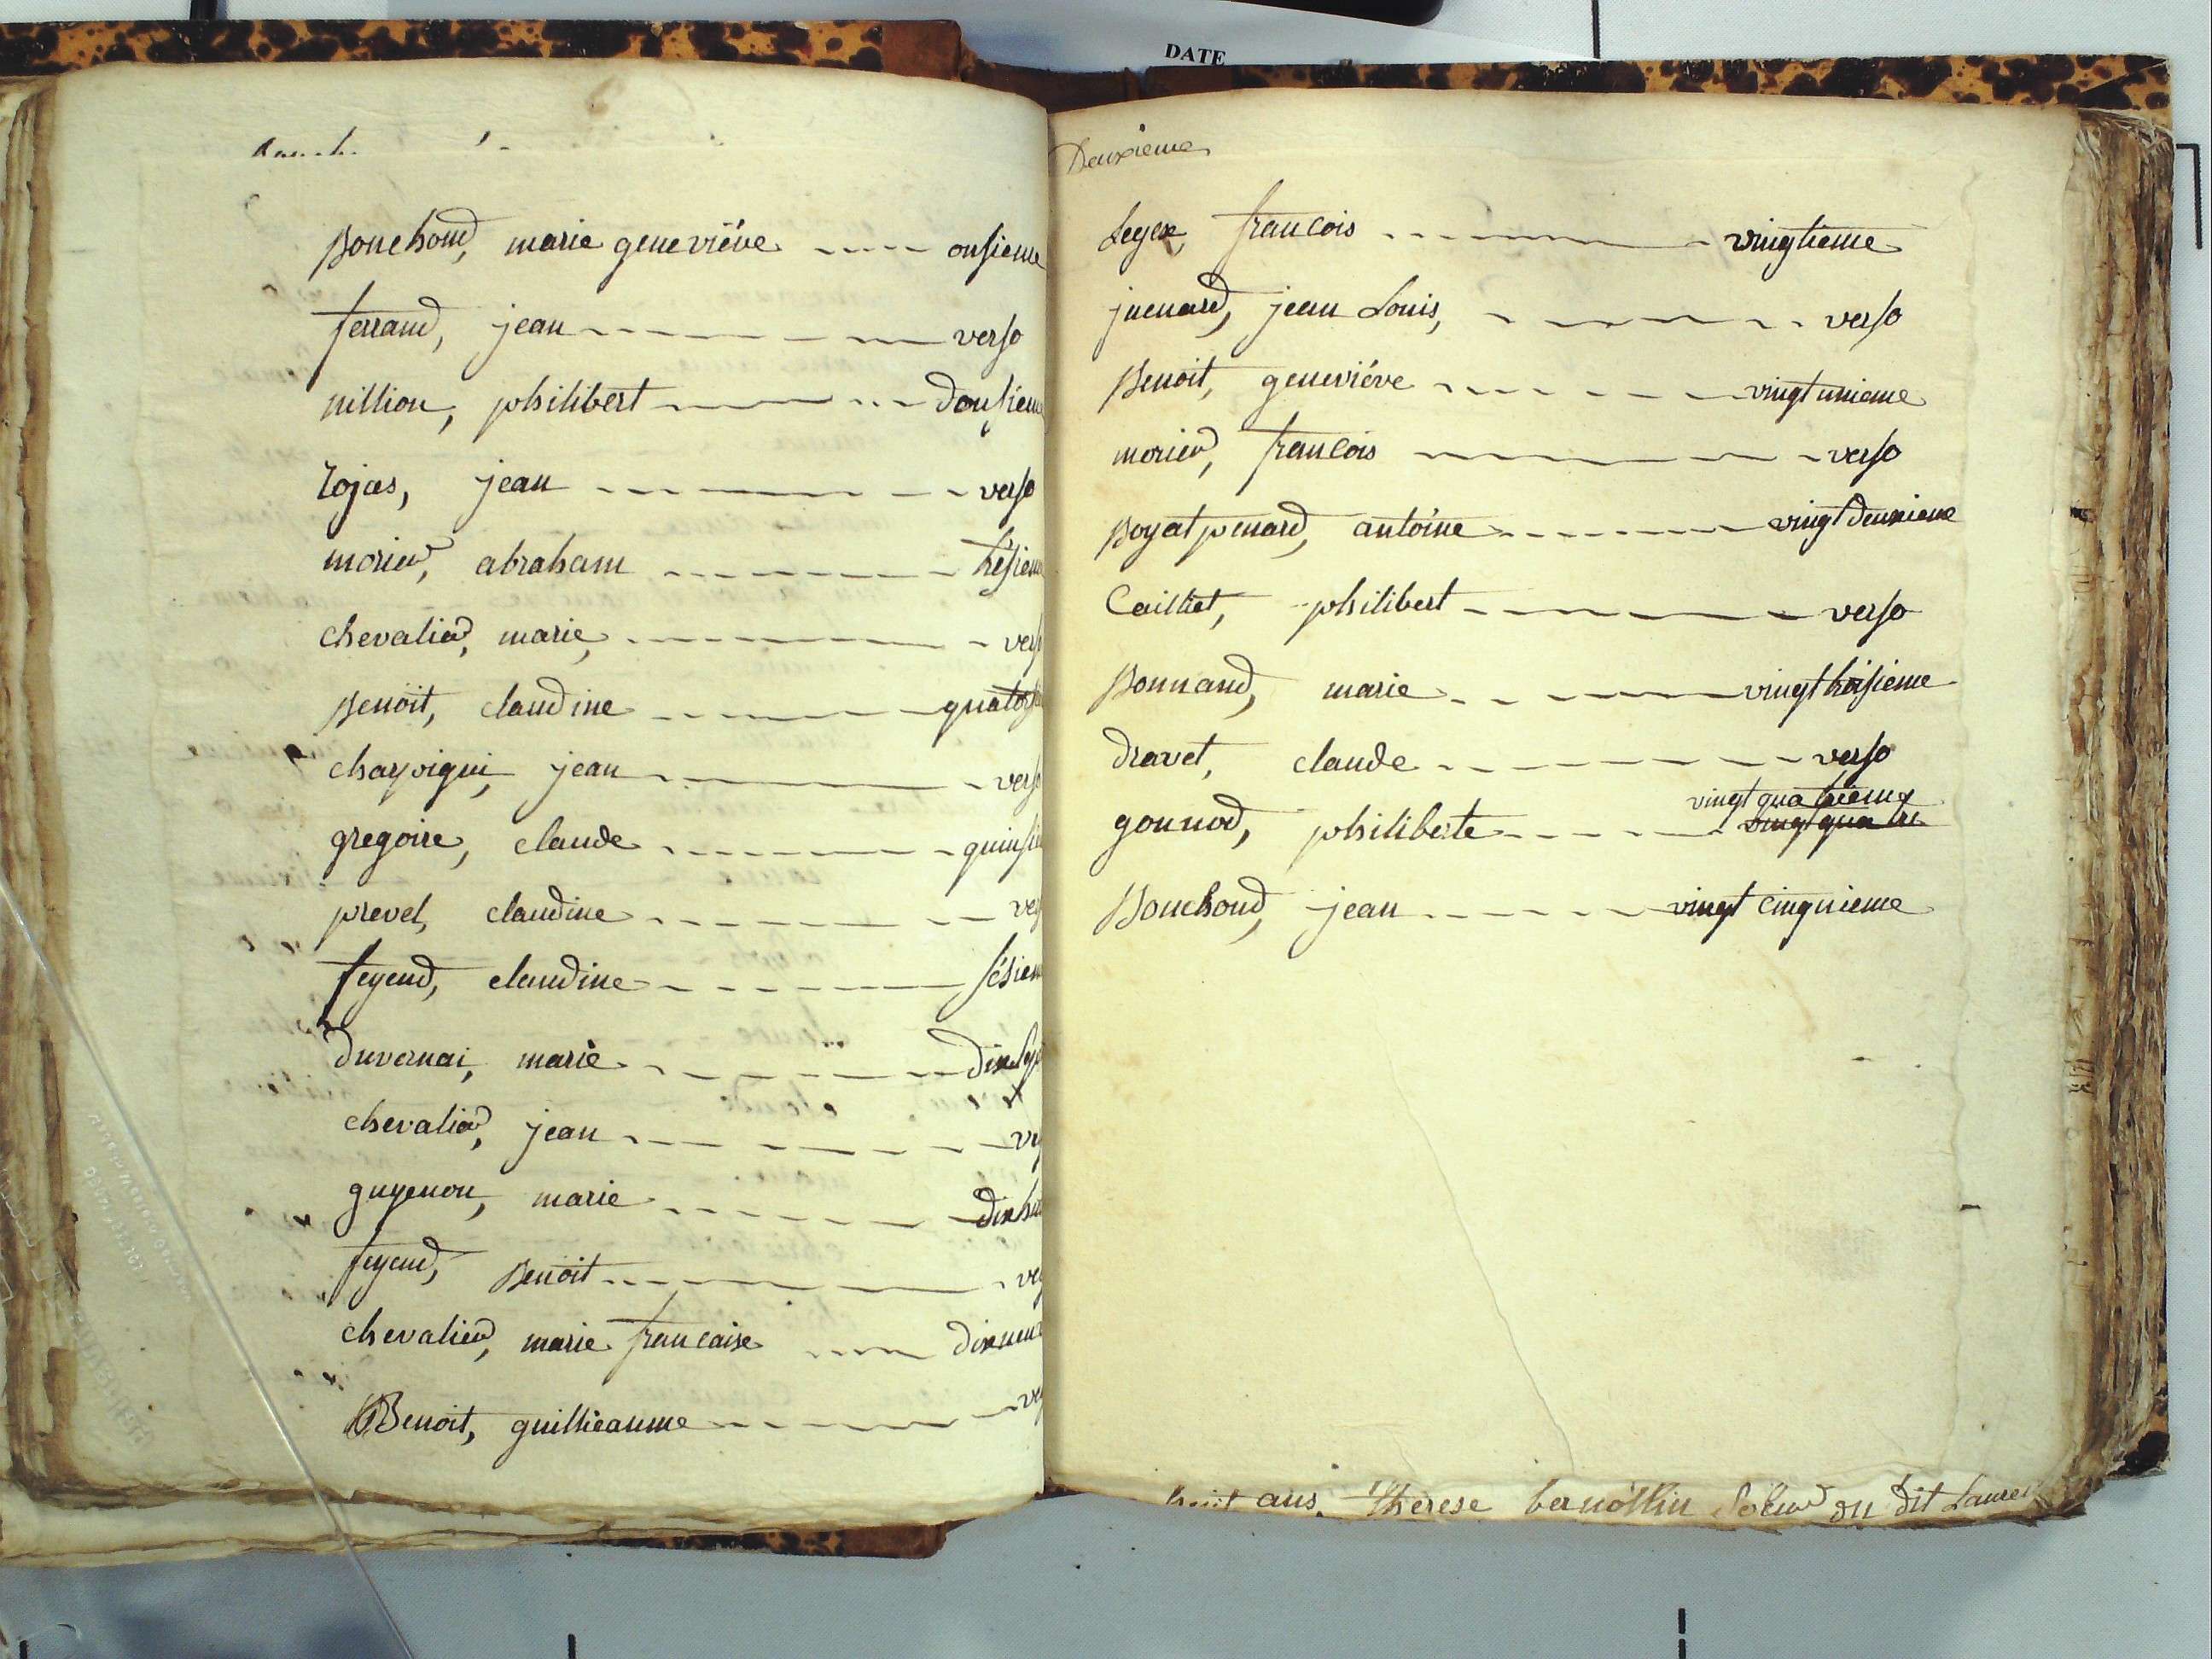 DATE
Bouchoud, marie geneviéve onsieme
ferraud, jean verso
nillion, philibert dousieme
rojas, jean verso
morier, abraham trésieme
chevalier, marie, vers
Benoit, claudine quators
charvigni, jean vers
gregoire, claude quinsie
prevel, claudine ver
feyeud, claudine sésiem
duvernai, marie dixsep
chevalier, jean ve
guyenon, marie dixhui
feyeud, Benoit ve
chevalier, marie francaise dixneu
Benoit, guillieaume ve
Deuxieme
Leger, francois vingtieme
juenard, jean Louis, verso
Benoit, geneviéve vingtunieme
morier, francois verso
Boyatpenard, antoine vingtdeuxieme
Cailliet, philibert verso
Bonnaud, marie vingttroisieme
dravet, claude verso
vingt quatrieme
gonnod, philiberte vingt quatri
Bouchoud, jean vingt cinquieme
huit ans. therese bernollin du dit Laurent